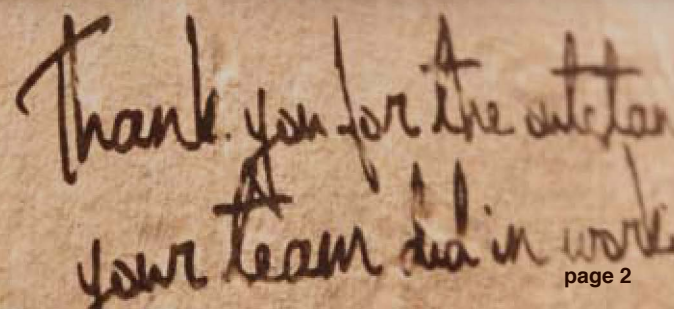 Thank you for the outstan
your team did in work
page 2